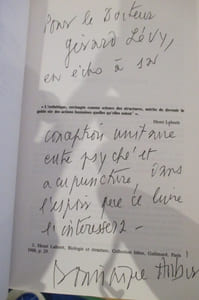 Pour le Docteur
gérard Lévy,
en écho à sa
« L'esthétique, envisagée comme science des structures, mérite de devenir le
guide sûr des actions humaines quelles qu'elles soient¹ ».
Henri Laborit
conception unitaire
entre psyché et
acupuncture, dans
l'espoir que ce livre
l'intéressera -
1. Henri Laborit, Biologie et structure, Collection Idées, Gallimard, Paris
1968, p. 29
Dominique